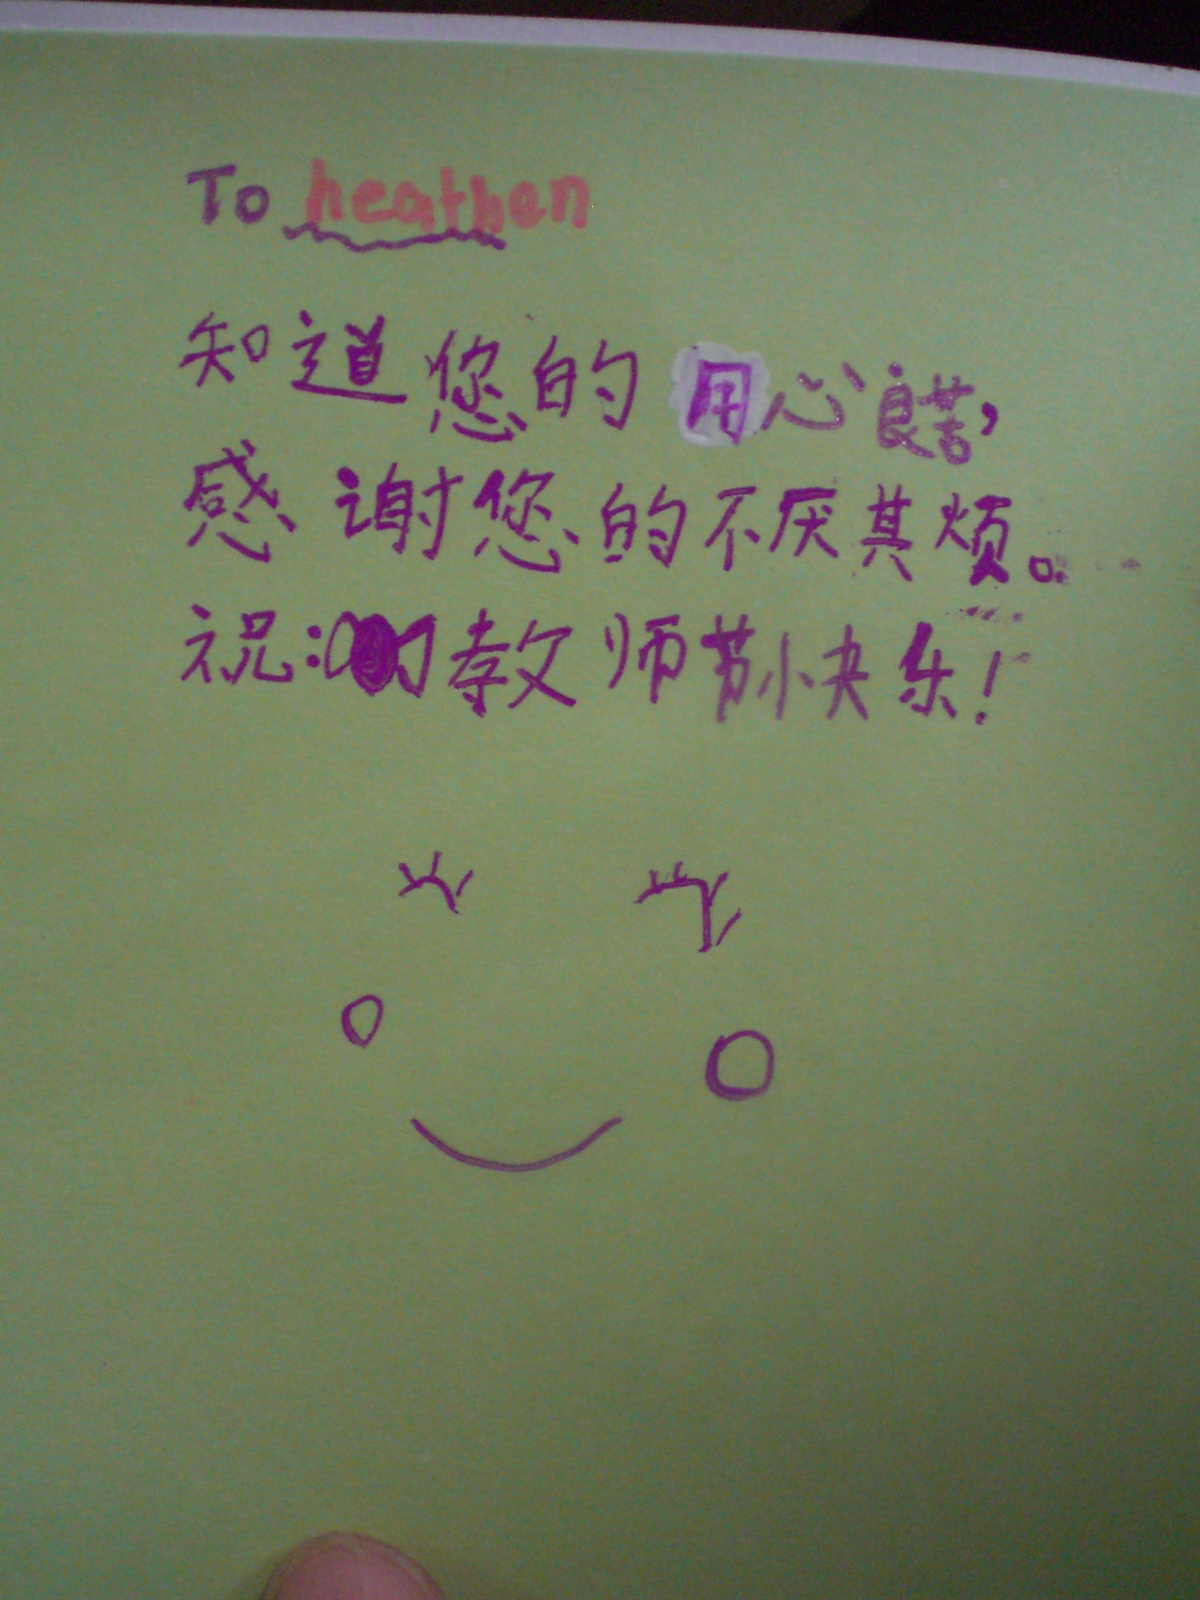 To heathen
知道您的用心良苦,
感谢您的不厌其烦。
祝:教师节快乐!